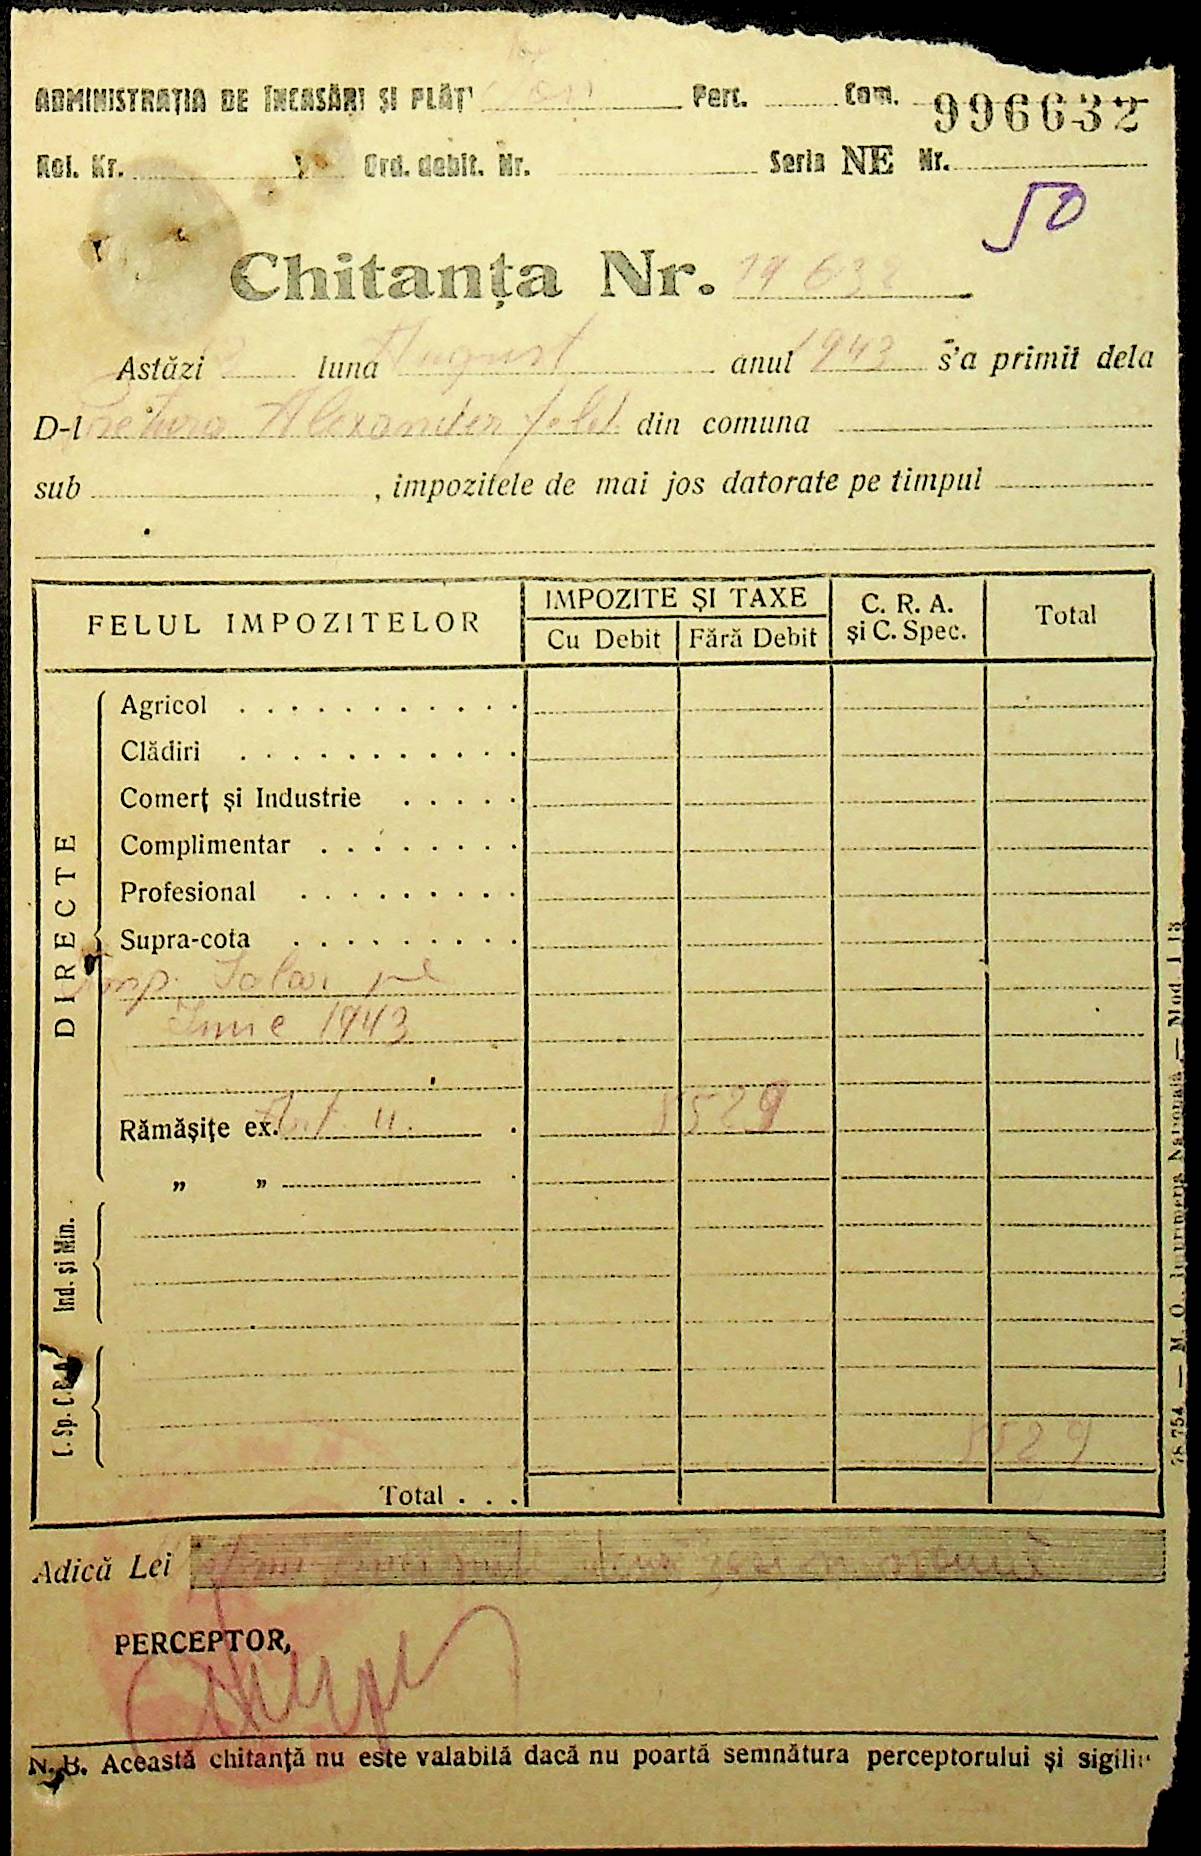 ADMINISTRAȚIA DE ÎNCASĂRI ȘI PLĂȚI Perc. Com. 996632
Rol. Nr. Ord. debit. Nr. Seria NE Nr.
50
Chitanța Nr. 19632
Astăzi luna August anul 1943 s'a primit dela
D-l Pretura Alexanderfeld din comuna
sub , impozitele de mai jos datorate pe timpul
FELUL IMPOZITELOR IMPOZITE ȘI TAXE C. R. A. și C. Spec. Total
Cu Debit Fără Debit
DIRECTE
Agricol
Clădiri
Comerț și Industrie
Complimentar
Profesional
Supra-cota
Imp. Salar pe
Iunie 1943
Rămășițe ex. 5529
„ „
Ind. și Min.
C. Sp. C.R.A.
5529
Total . . .
Adică Lei
PERCEPTOR,
N. B. Această chitanță nu este valabilă dacă nu poartă semnătura perceptorului și sigiliu
78.754. — M. O., Imprimeria Națională. — Mod. 1.13